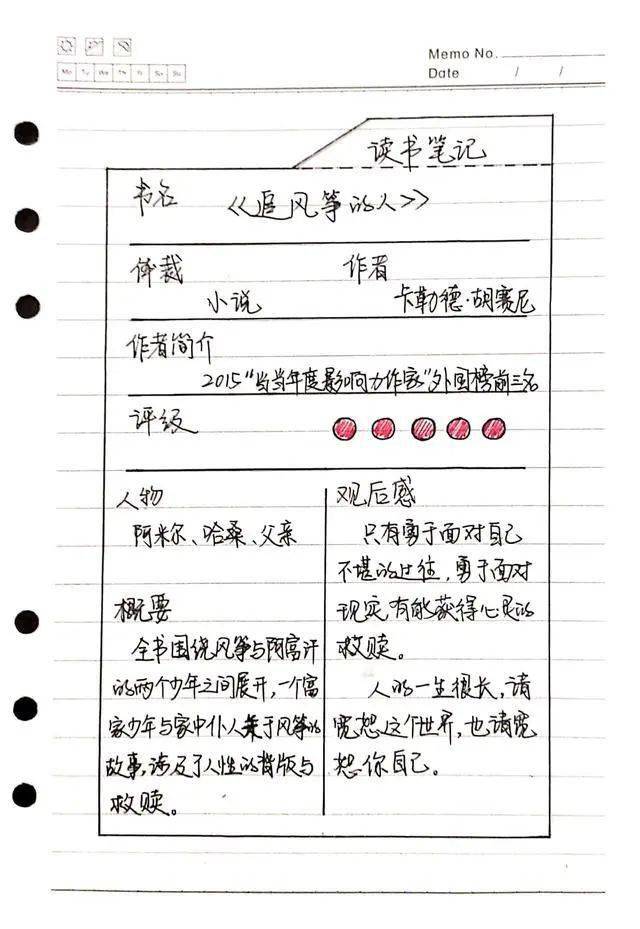 Memo No.
Mo Tu We Th Fr Sa Su
Date / /
读书笔记
书名 《追风筝的人》
体裁 作者
小说 卡勒德·胡赛尼
作者简介
2015“当当年度影响力作家”外国榜前三名
评级
人物
阿米尔、哈桑、父亲
概要
全书围绕风筝与阿富汗
的两个少年之间展开,一个富
家少年与家中仆人关于风筝的
故事,涉及了人性的背版与
救赎。
观后感
只有勇于面对自己
不堪的过往,勇于面对
现实,有能获得心灵的
救赎。
人的一生很长,请
宽恕这个世界,也请宽
恕你自己。